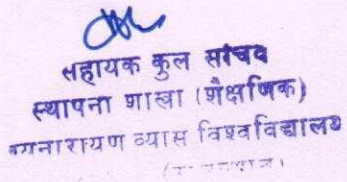 सहायक कुल सचिव
स्थापना शाखा (शैक्षणिक)
जयनारायण व्यास विश्वविद्यालय